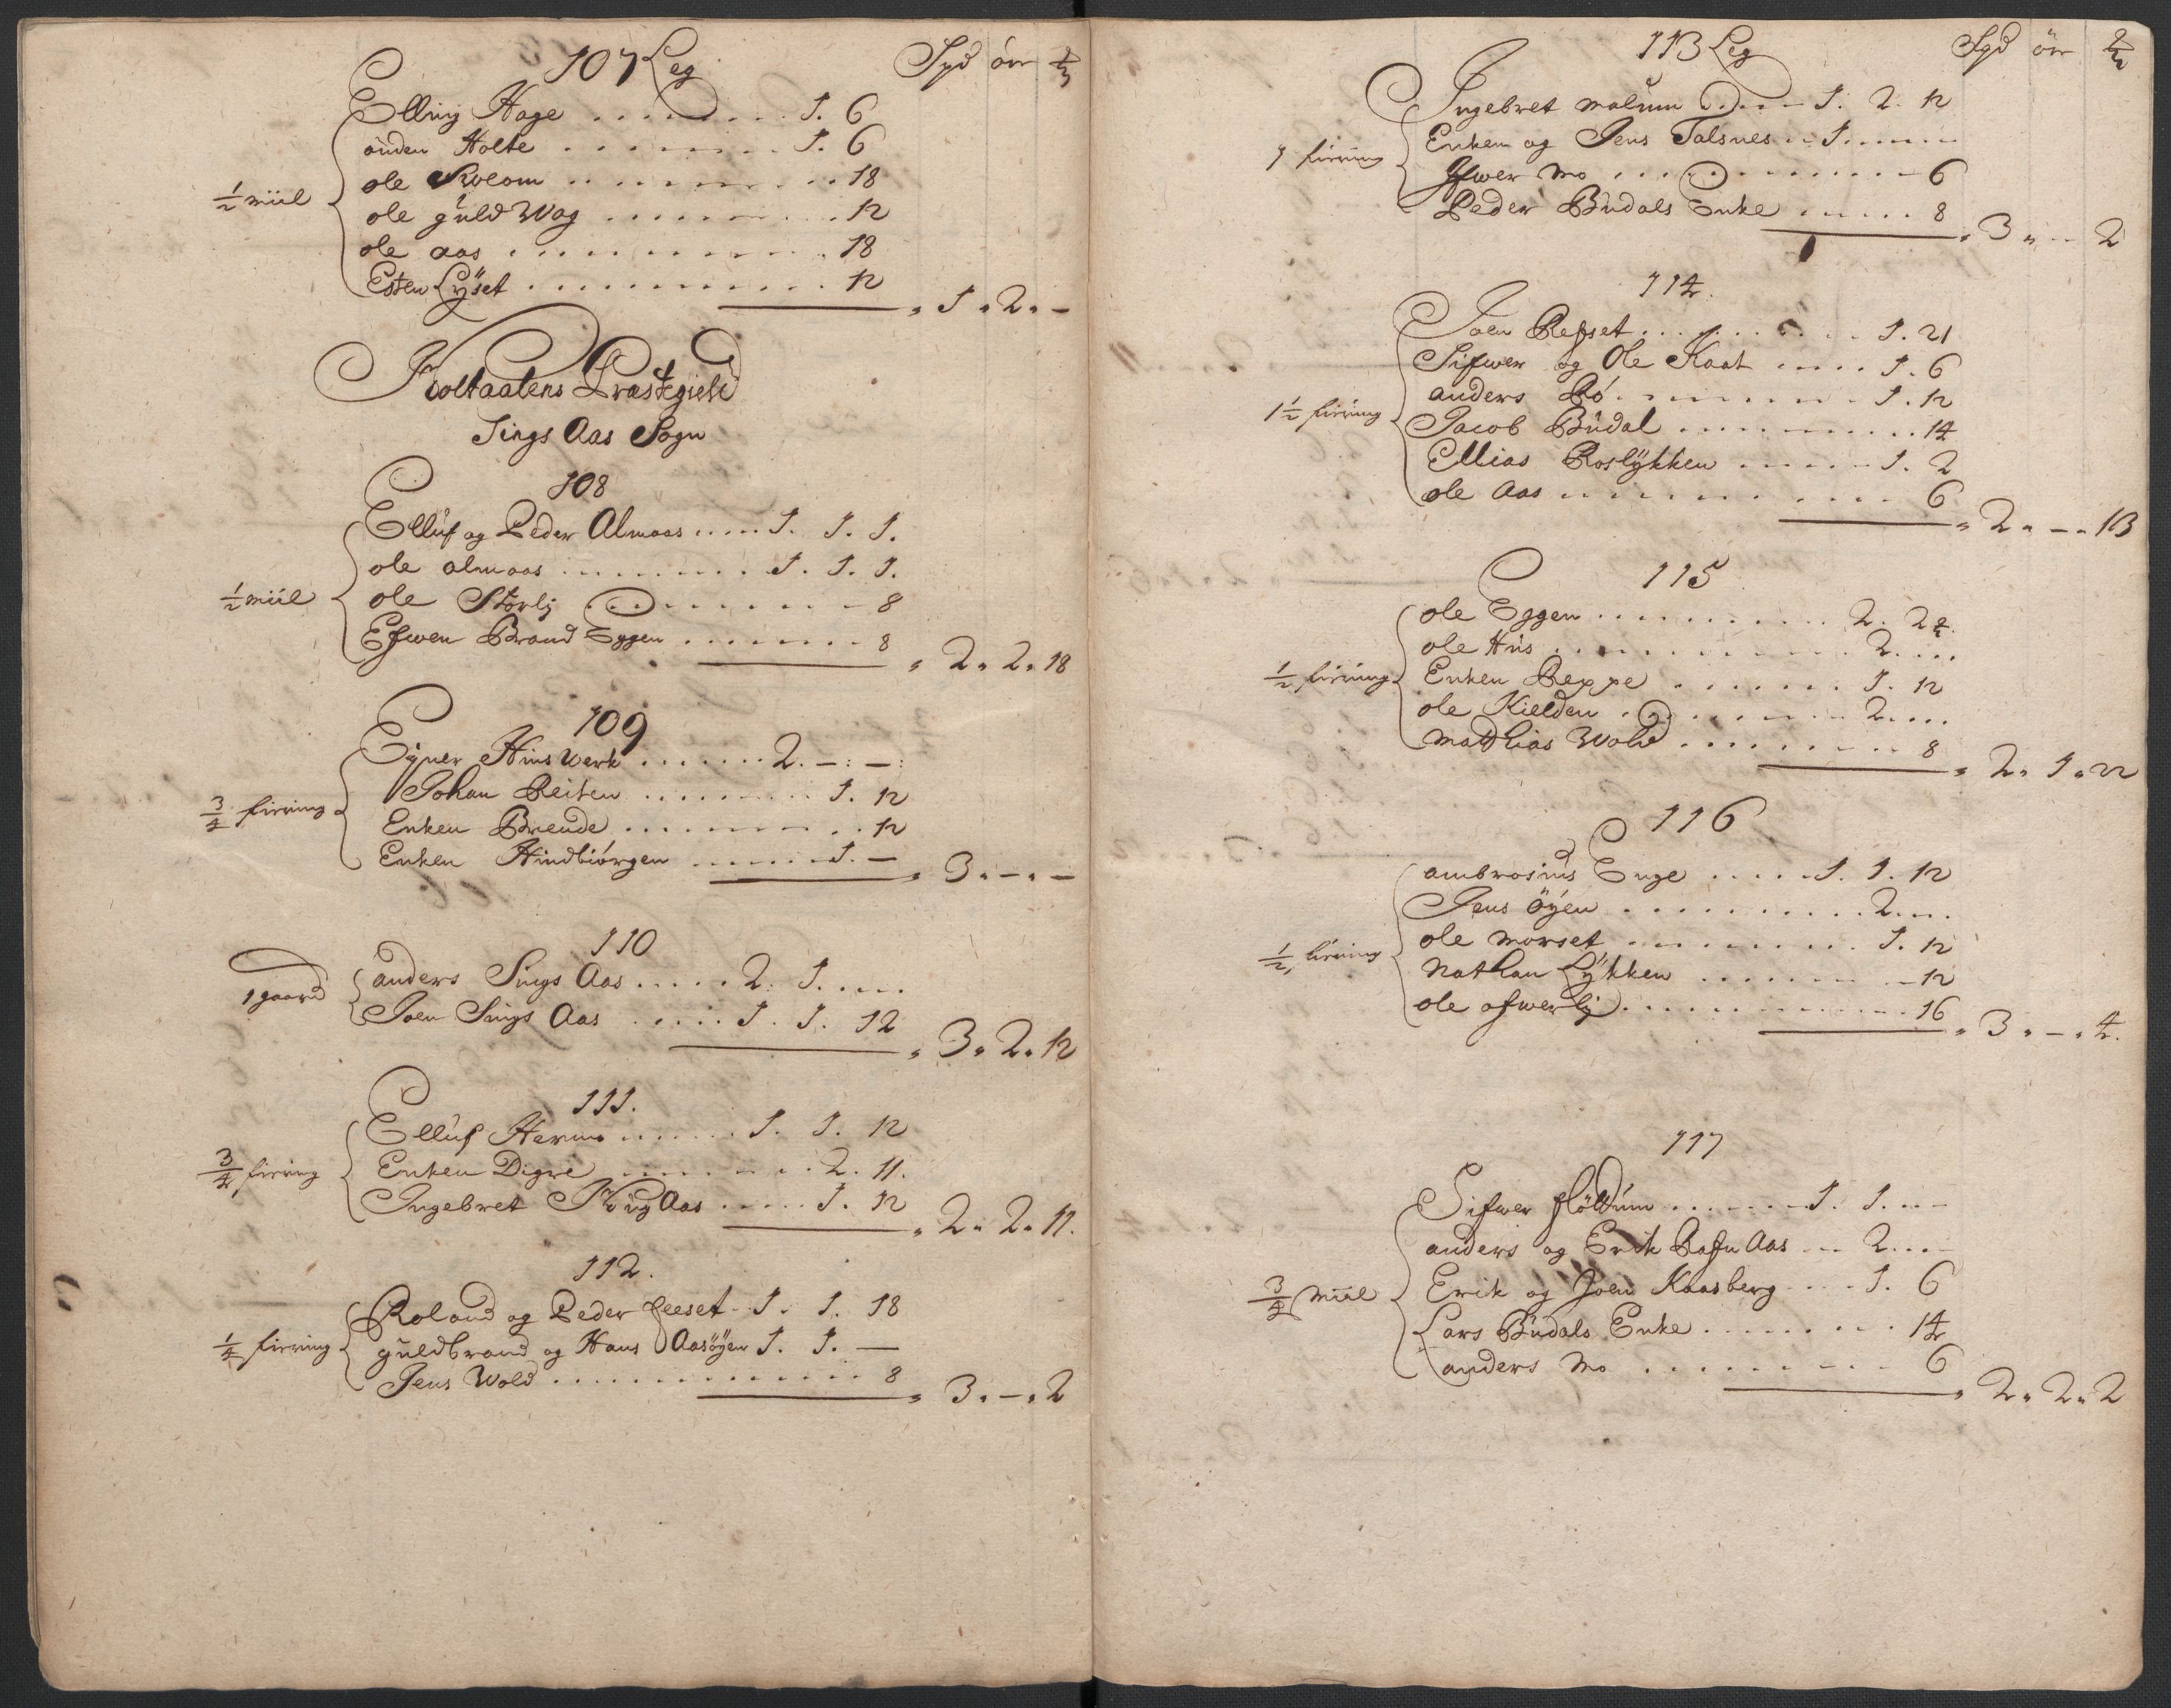 107 Leg Spd ór
Elling Hage . . . . . . . . 1. 6
óuden Holte . . . . . . . . 1. 6
ole Kolom . . . . . . . . 18
½ miil
ole guld Wog . . . . . . . . 12
ole aas . . . . . . . . 18
Esten Lÿset . . . . . . . . 12
" 1 " 2 " –
Holtaalens Præstegield
Sings Aas Sogn
108
Elluf og Peder Almaas . . . . 1. 1. 1.
ole almaas . . . . . . . . 1. 1. 1.
½ miil
ole Storlj . . . . . . . . 8
Efwen Brand Eggen . . . . . . . . 8
" 2 " 2 " 18
109
Eÿner Hinswerk . . . . . . . 2. – : – :
Johan Reiten . . . . . . . . 1. 12
¾ firring
Enken Brende . . . . . . . . 12
Enken Hindbiórgen . . . . . . 1. –
" 3 " – " –
110
anders Sings Aas . . . . . 2. 1. . . .
1 gaard
Joen Sings Aas . . . . . 1. 1. 12
" 3 " 2 " 12
111.
Elluf Hermo . . . . . . 1. 1. 12
¾ firring
Enken Digre . . . . . . . 2. 11.
Ingebret Kirg Aas . . . . . 1. 12
" 2 " 2 " 11.
112.
Roland og Peder feeset – 1. 1. 18
¼ firring
guldbrand og Hans Aasöÿen 1. 1. –
Jens Wold . . . . . . . . . . 8
" 3 " – " 2
113 Leg Spd ör
Ingebret malum . . . . – 1. 2. 12
1 firring
Enken og Jens Talsnes . . 1. . . . .
Ifwer Mo . . . . . . . . . 6
Peder Budals Enke . . . . . 8
" 3 " – " 2
114.
Joen Refset . . . . . . . . 1. 21
Sifwer og Ole Kaat . . . . 1. 6
anders Bó . . . . . . . . 1. 12
1½ firring
Jacob Büdal . . . . . . . . 14
Ellias Roslÿkken . . . . . 1. 2
ole Aas . . . . . . . . . 6
" 2 " – " 13
115
ole Eggen . . . . . . . . 2. 24.
ole Hus . . . . . . . . . 2. . . .
½ firring
Enken Reppe . . . . . . . 1. 12
ole Kielden . . . . . . . 2. . . .
Matthias Wold . . . . . . . . 8
" 2 " 1 " 22
116
ambrosius Enge . . . . . 1. 1. 12
Jens öÿen . . . . . . . . . 2. . .
½ firring
ole morset . . . . . . . . 1. 12
Nathan Lÿkken . . . . . . . 12
ole ofwerlj . . . . . . . . . 16
" 3 " – " 4.
117
Sifwer flöttúm . . . . . . 1. 1. . . –
anders og Erik Rafn Aas . . 2. . . –
¾ Miil
Erik og Joen Kaasberg . . . . 1. 6
Lars Büdals Enke . . . . . . . . 14
anders Mo . . . . . . . . . 6
" 2 " 2 " 2